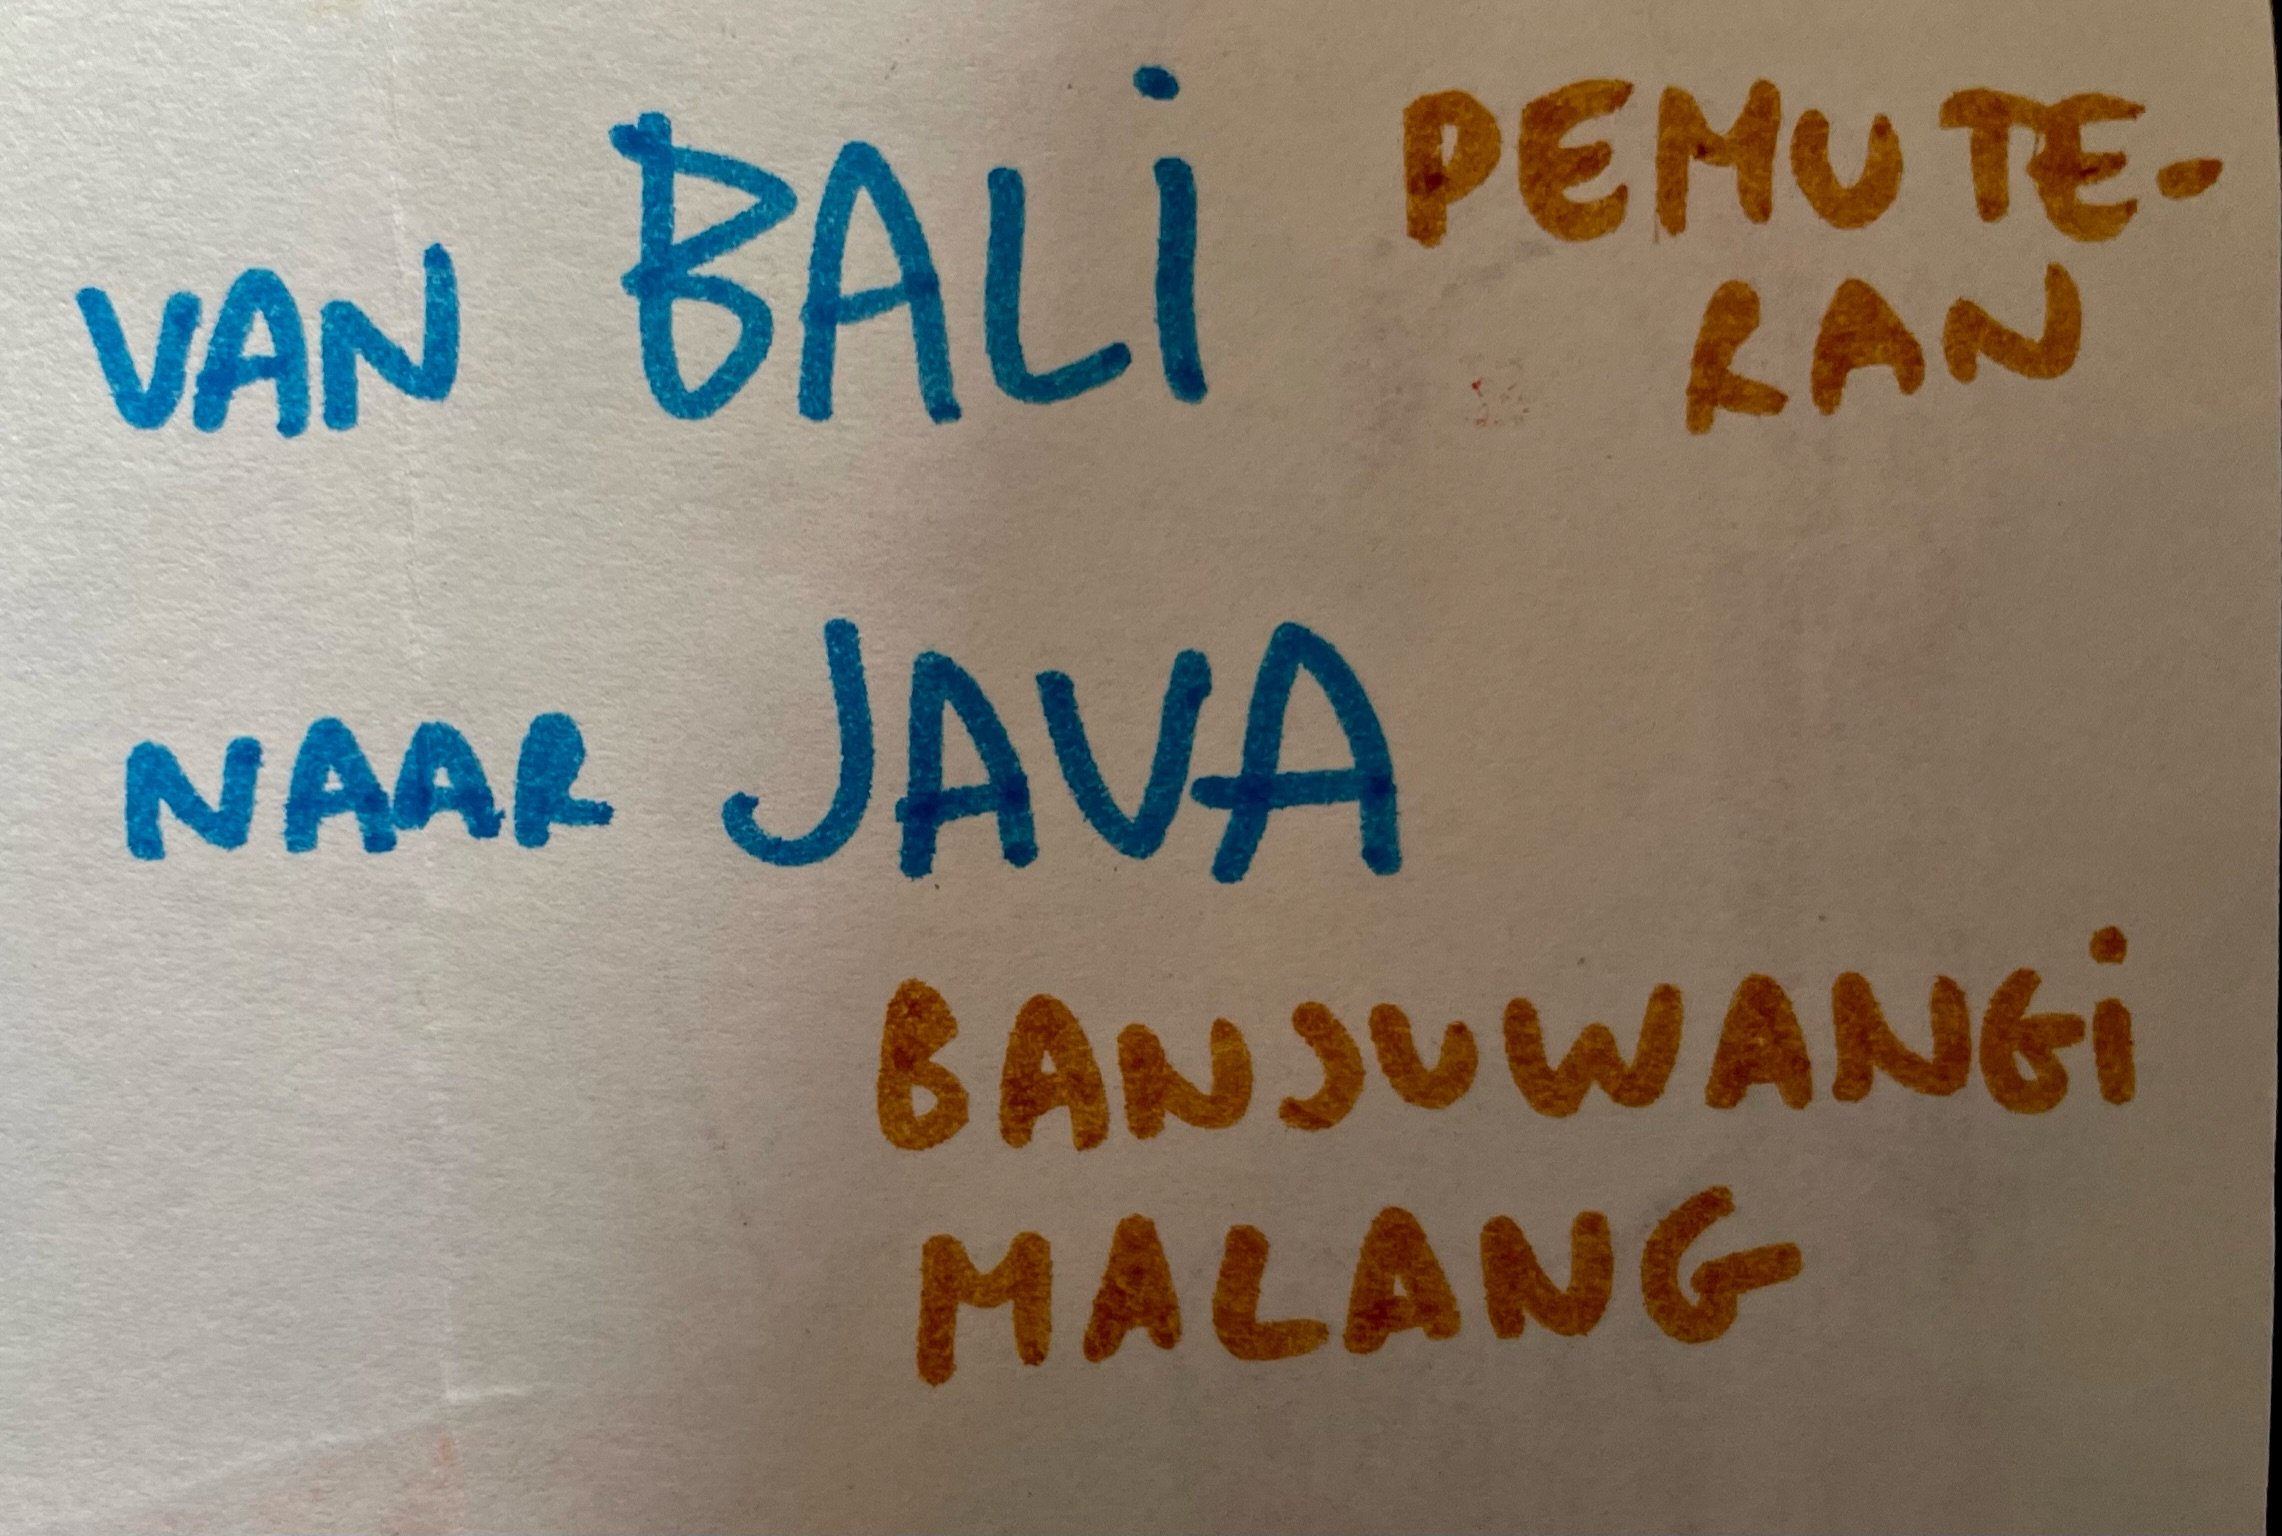 VAN BALi PEMUTE-
RAN
NAAR JAVA
BANJUWANGi
MALANG